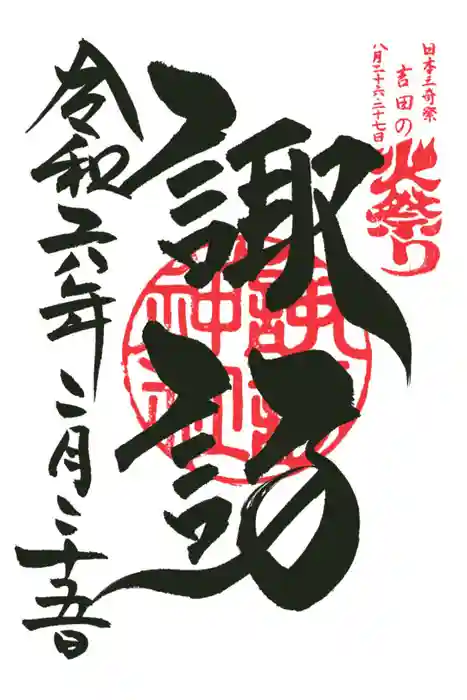 日本三奇祭
吉田の
八月二十六、二十七日
火祭り
諏訪
諏訪神社
令和六年二月二十五日